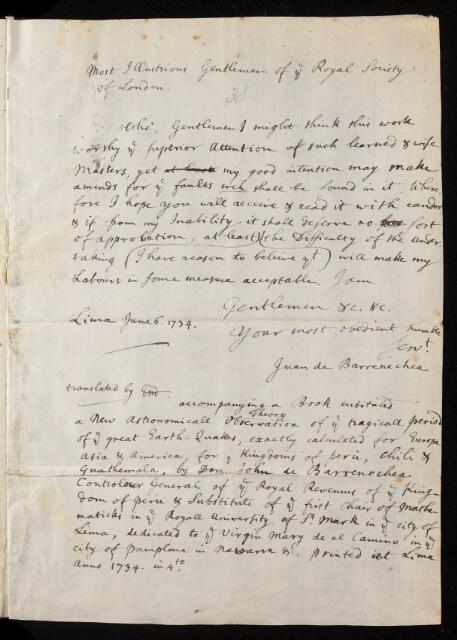 Most Illustrious Gentlemen of yͤ Royal Society
of London.
36
Gentlemen I might think this work
worthy yͤ superior Attention of such learned & wise
Masters, yet at least my good intention may make
amends for yͤ faults wch shall be found in it. Where
fore I hope you will receive & read it with candor
& if from my Inability it shall deserve no sort
of approbation, at least (the Difficulty of the under
taking (I have reason to beleive yt) will make my
Labours in some measure acceptable. I am
Gentlemen &c. &c.
Lima June 6. 1734.
Your most obedient humble
Servt.
Juan de Barrenechea
translated by accompanying a Book entituled
a New Astronomicall Observation Theory of yͤ tragicall period
of yͤ great Earth-Quakes, exactly calculated for Europe
Asia & America, for yͤ Kingdoms of peru, Chili &
Guathemala, by Don John de Barrenechea
Controlour General of yͤ Royal Revenues of yͤ King-
dom of peru & Substitute of yͤ first Chair of Mathe
maticks in yͤ Royall University of St. Mark in yͤ city of
Lima, dedicated to yͤ Virgin Mary de el Camino in yͤ
city of pamplona in Navarre &. printed at Lima
Anno 1734. in 4to.